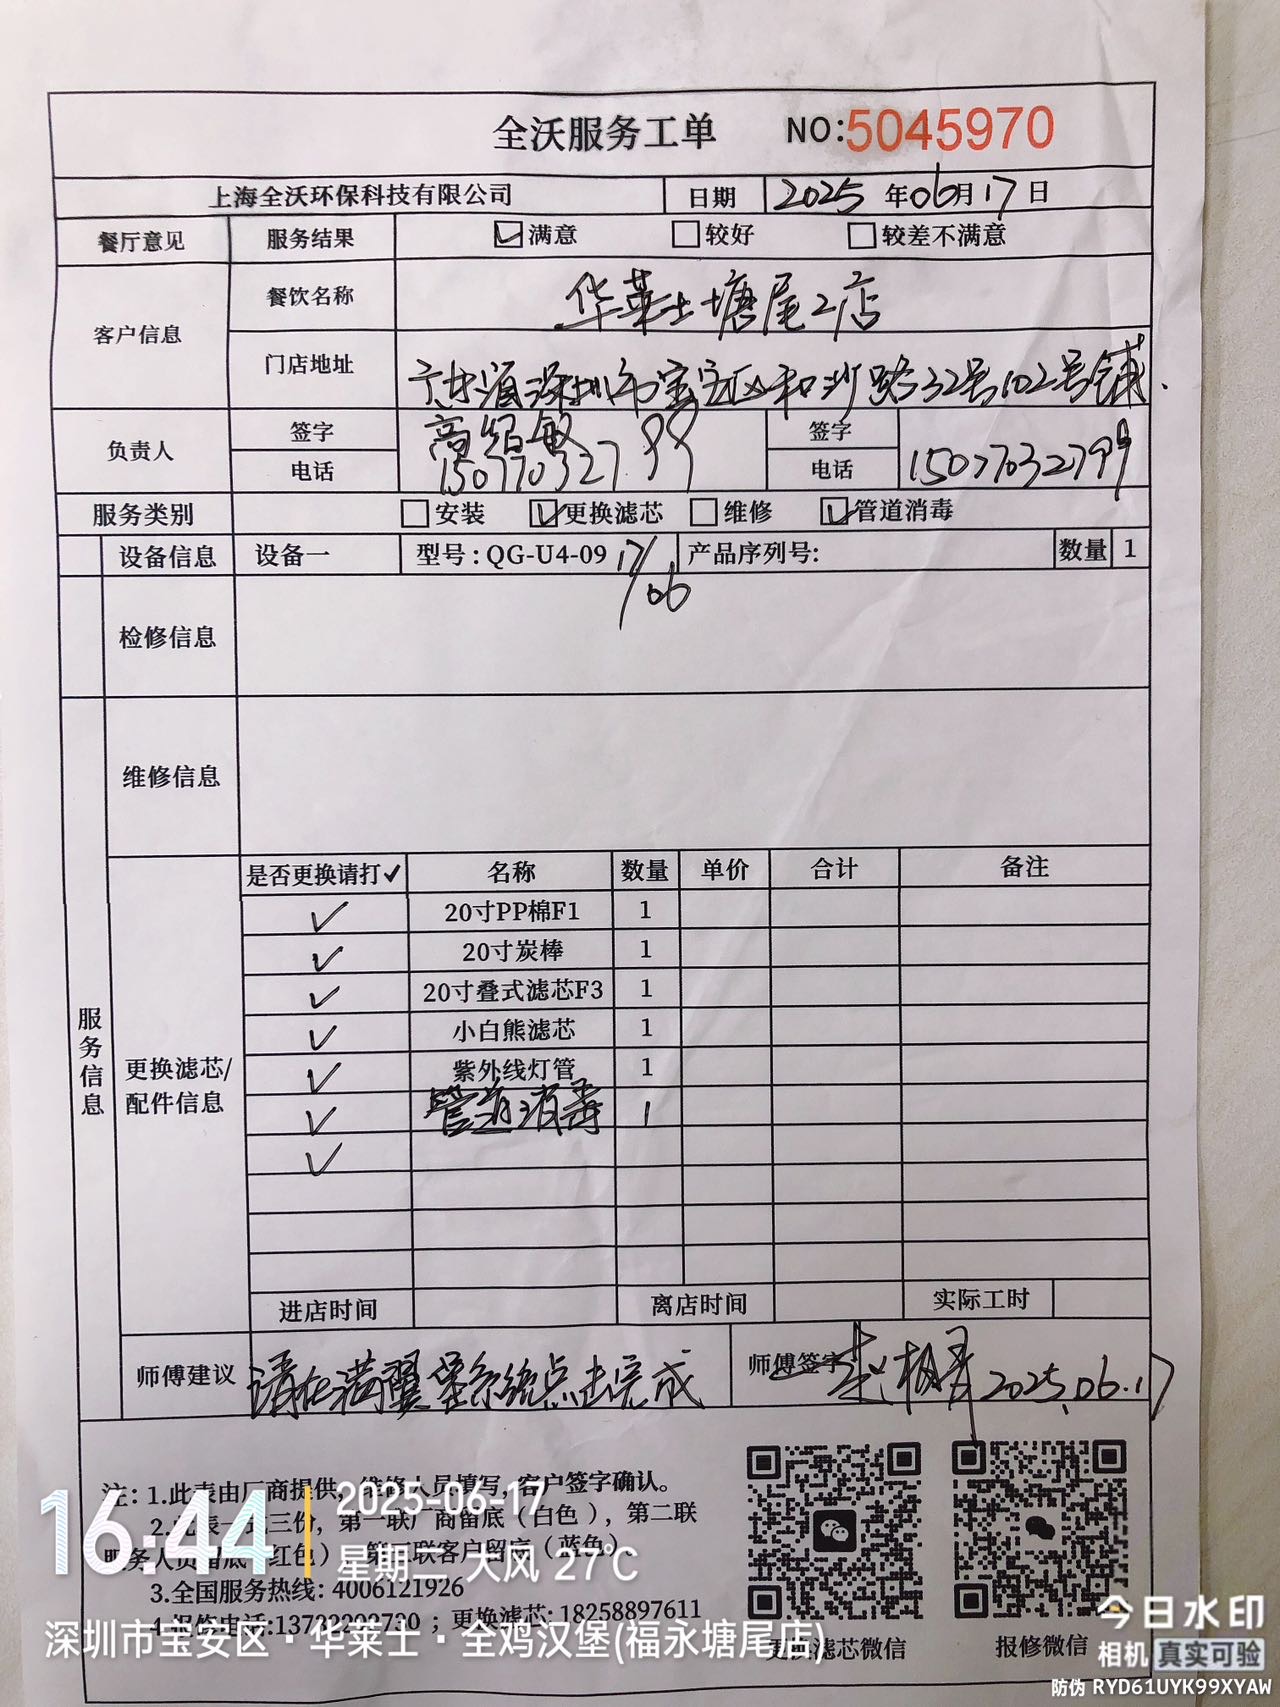 全沃服务工单 NO:5045970
上海全沃环保科技有限公司 日期 2025 年06月17日
餐厅意见 服务结果 ☑满意 □较好 □较差不满意
客户信息 餐饮名称 华莱士塘尾2店
门店地址 广东省深圳市宝安区和沙路32号102号铺.
负责人 签字 高绍敏 签字
电话 15077032799 电话 15077032799
服务类别 □安装 ☑更换滤芯 □维修 ☑管道消毒
设备信息 设备一 型号:QG-U4-09 17/06 产品序列号: 数量 1
检修信息
维修信息
服务信息
更换滤芯/配件信息
是否更换请打✓ 名称 数量 单价 合计 备注
✓ 20寸PP棉F1 1
✓ 20寸炭棒 1
✓ 20寸叠式滤芯F3 1
✓ 小白熊滤芯 1
✓ 紫外线灯管 1
✓ 管道消毒 1
✓
进店时间 离店时间 实际工时
师傅建议 请在满翼 系统点击完成 师傅签字 2025.06.17
注:1.此表由厂商提供,维修人员填写,客户签字确认。
2.此表一式三份,第一联厂商留底(白色),第二联
服务人员留底(红色),第三联客户留底(蓝色)
3.全国服务热线:4006121926
4.报修电话: ;更换滤芯:18258897611
更换滤芯微信 报修微信
16:44 2025-06-17
星期二 大风 27℃
深圳市宝安区·华莱士·全鸡汉堡(福永塘尾店)
今日水印
相机 真实可验
防伪 RYD61UYK99XYAW